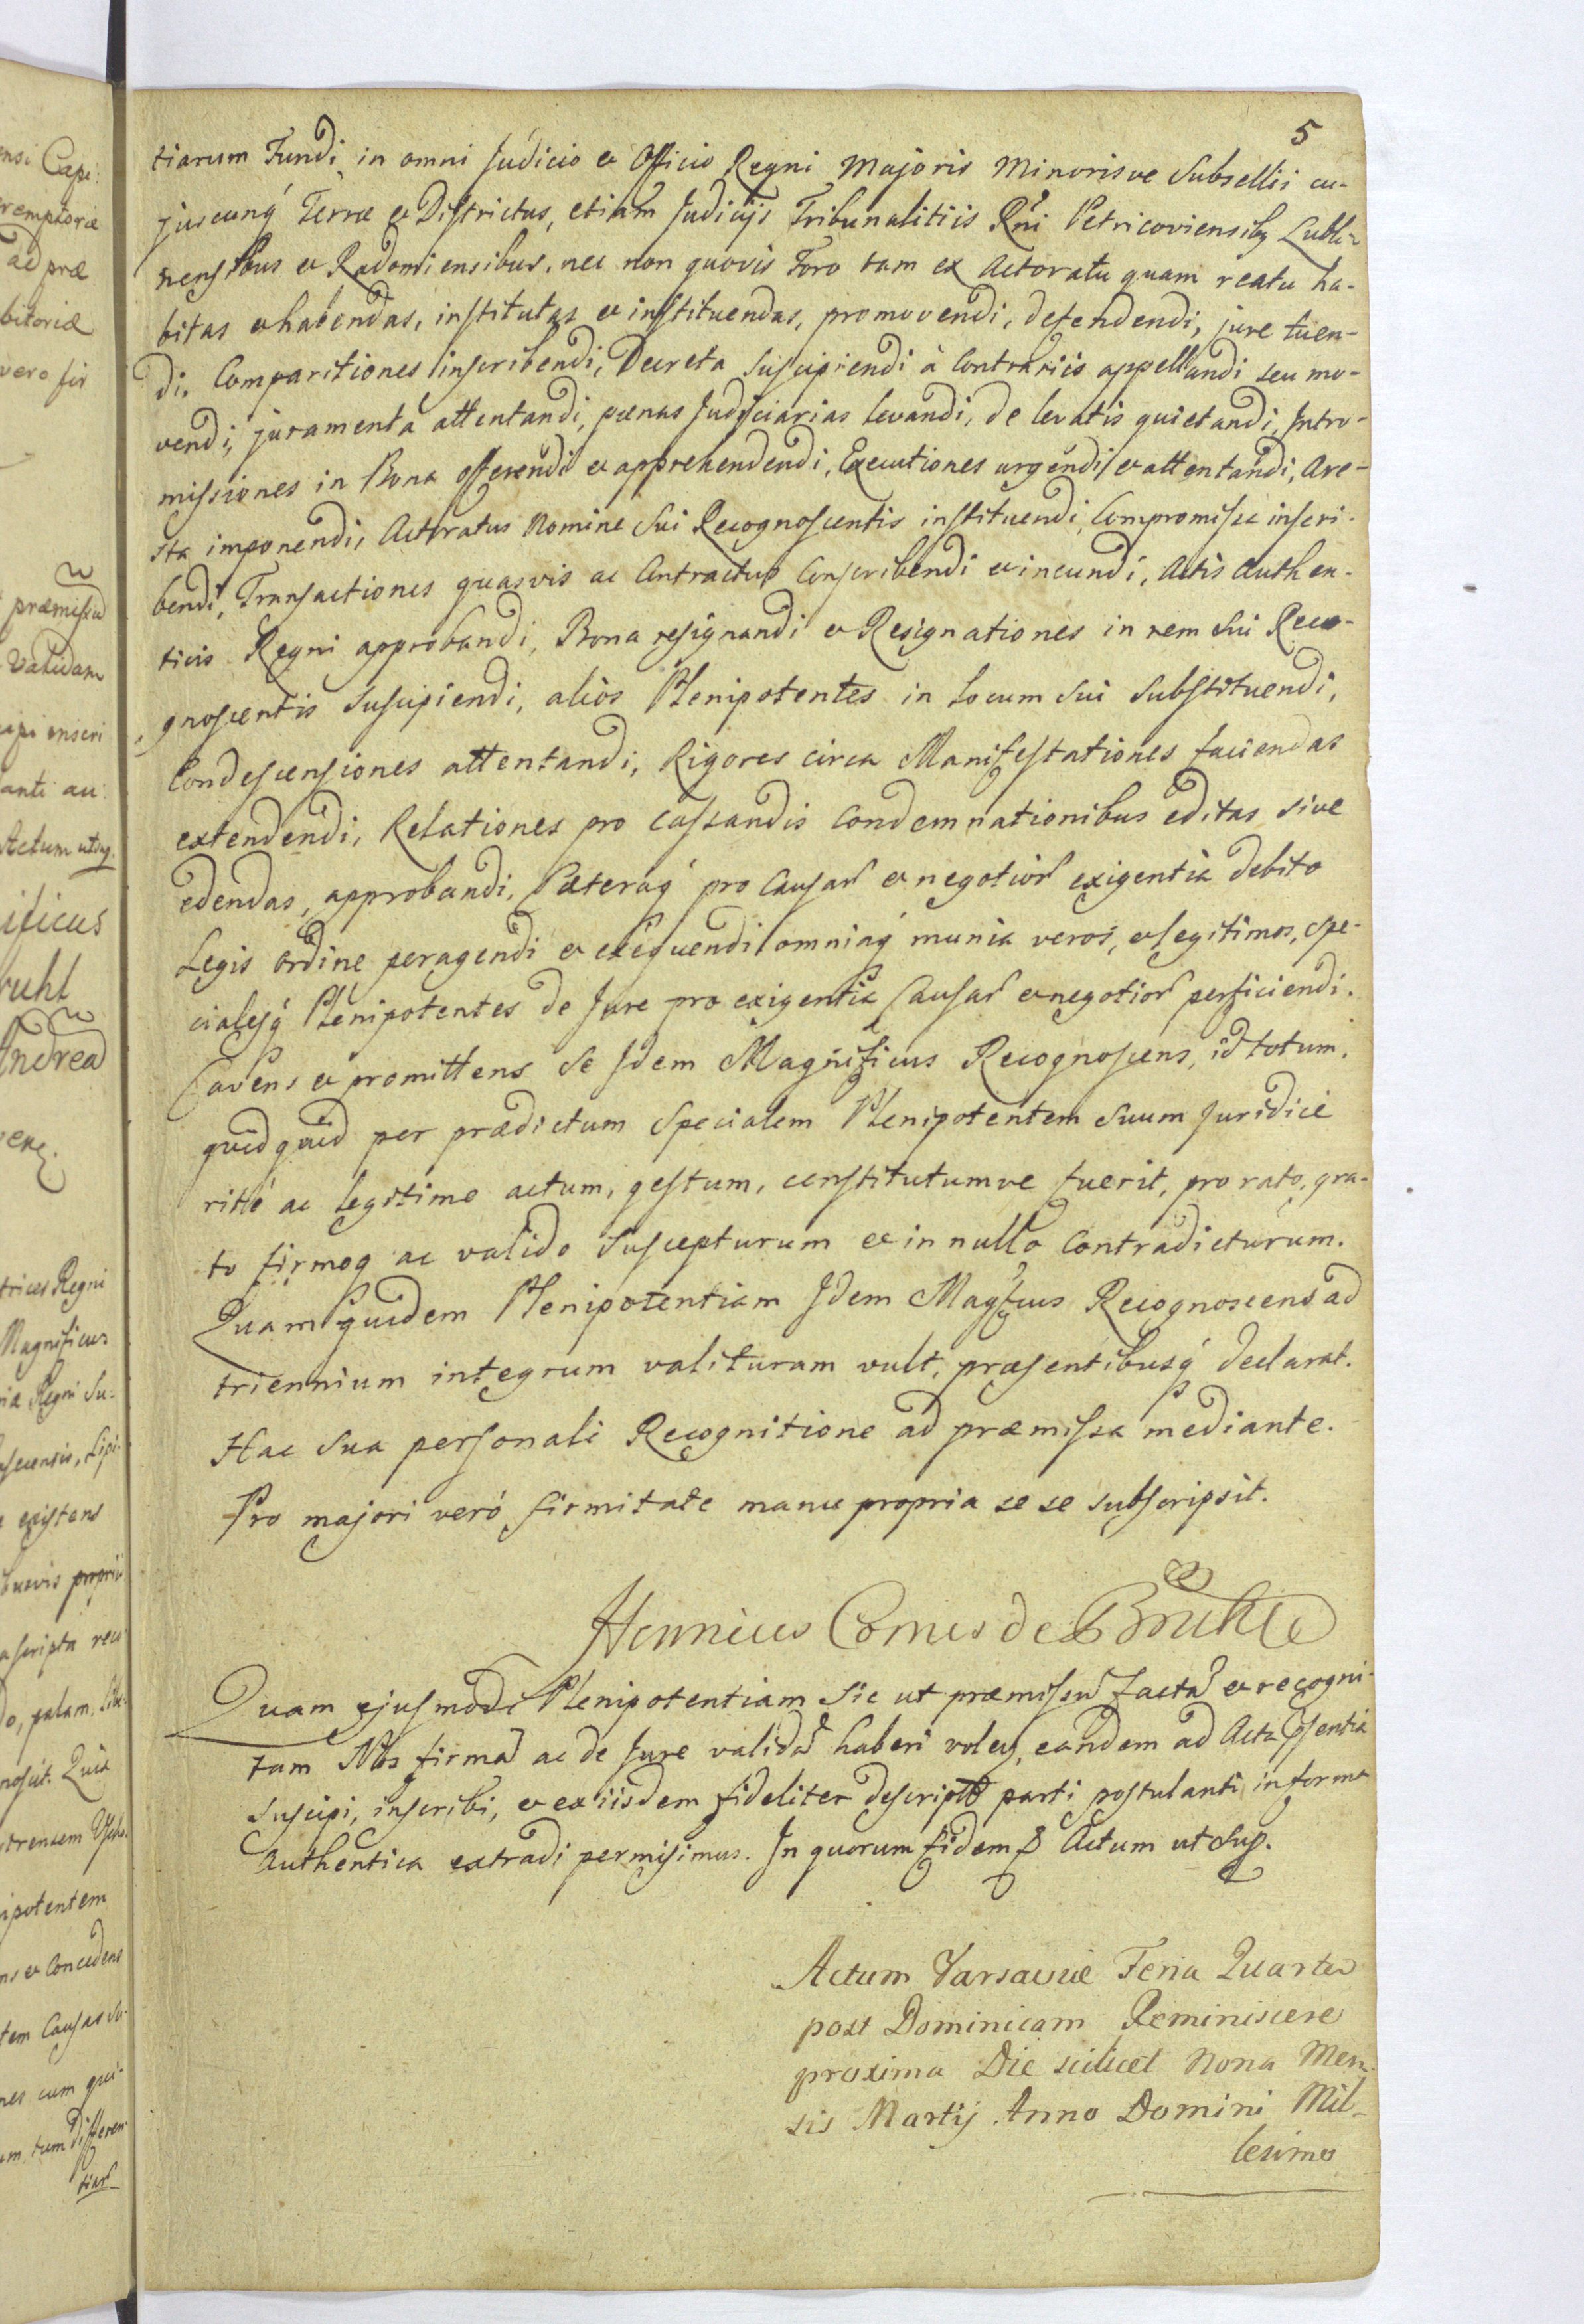 5
tiarum Fundi in omni Judicio et Officio Regni Majoris Minorisve Subsellii cu-
juscunq́ Terræ et Districtus, etiam Judicijs Tribunalitiis Rni Petricoviensibq Lubli-
nensibus et Radomiensibus, nec non quovis Foro tam ex Actoratu quam reatu ha-
bitas et habendas, institutas et instituendas, promovendi, defendendi, jure tuen-
di, Comparitiones inscribendi, Decreta suscipiendi à Contrariis appellandi seu mo-
vendi, juramenta attentandi, pœnas Judiciarias levandi, de levatis quietandi, Intro-
missiones in Bona offerendi et apprehendendi, Executiones urgendi et attentandi, Are-
sta imponendi, Actoratus Nomine Sui Recognoscentis instituendi, Compromissa inscri-
bendi, Transactiones quasvis ac Contractus Conscribendi et ineundi, Actis Authen-
ticis Regni approbandi, Bona resignandi et Resignationes in rem Sui Reco-
gnoscentis suscipiendi, alios Plenipotentes in Locum Sui Substituendi,
Condescensiones attentandi, Rigores circa Manifestationes faciendas
extendendi, Relationes pro cassandis Condemnationibus editas sive
edendas, approbandi, Cæteraq́ pro Causar et negotior exigentia debito
Legis ordine peragendi et exequendi omniaq́ munia veros, et legitimos, Spe-
cialesq́ Plenipotentes de Jure pro exigentia Causar et negotior perficiendi.
Cavens et promittens Se Idem Magnificus Recognoscens, id totum,
quidquid per prædictum Specialem Plenipotentem Suum Juridicè
ritè ac legitime actum, gestum, constitutumve fuerit, pro rato, gra-
to firmoq ac valido Suscepturum et in nullo Contradicturum.
Quam quidem Plenipotentiam Idem Magfcus Recognoscens ad
triennium integrum valituram vult, præsentibusq́ declarat.
Hac Sua personali Recognitione ad præmissa mediante.
Pro majori verò firmitate manu propria se se subscripsit.
Henricus Comes de Bruhl
Quam ejusmodi Plenipotentiam Sic ut præmissũ factã et recogni-
tam Nos firmã ac de Jure validã haberi voleq, eandem ad Acta psentia
Suscipi, inscribi, et ex iisdem fideliter descriptã parti postulanti, in forma
Authentica extradi permisimus. In quorum fidem p Actum ut Sup.
Actum Varsaviæ Feria Quarta
post Dominicam Reminiscere
proxima Die scilicet Nona Men-
sis Martij Anno Domini Mil-
lesimo